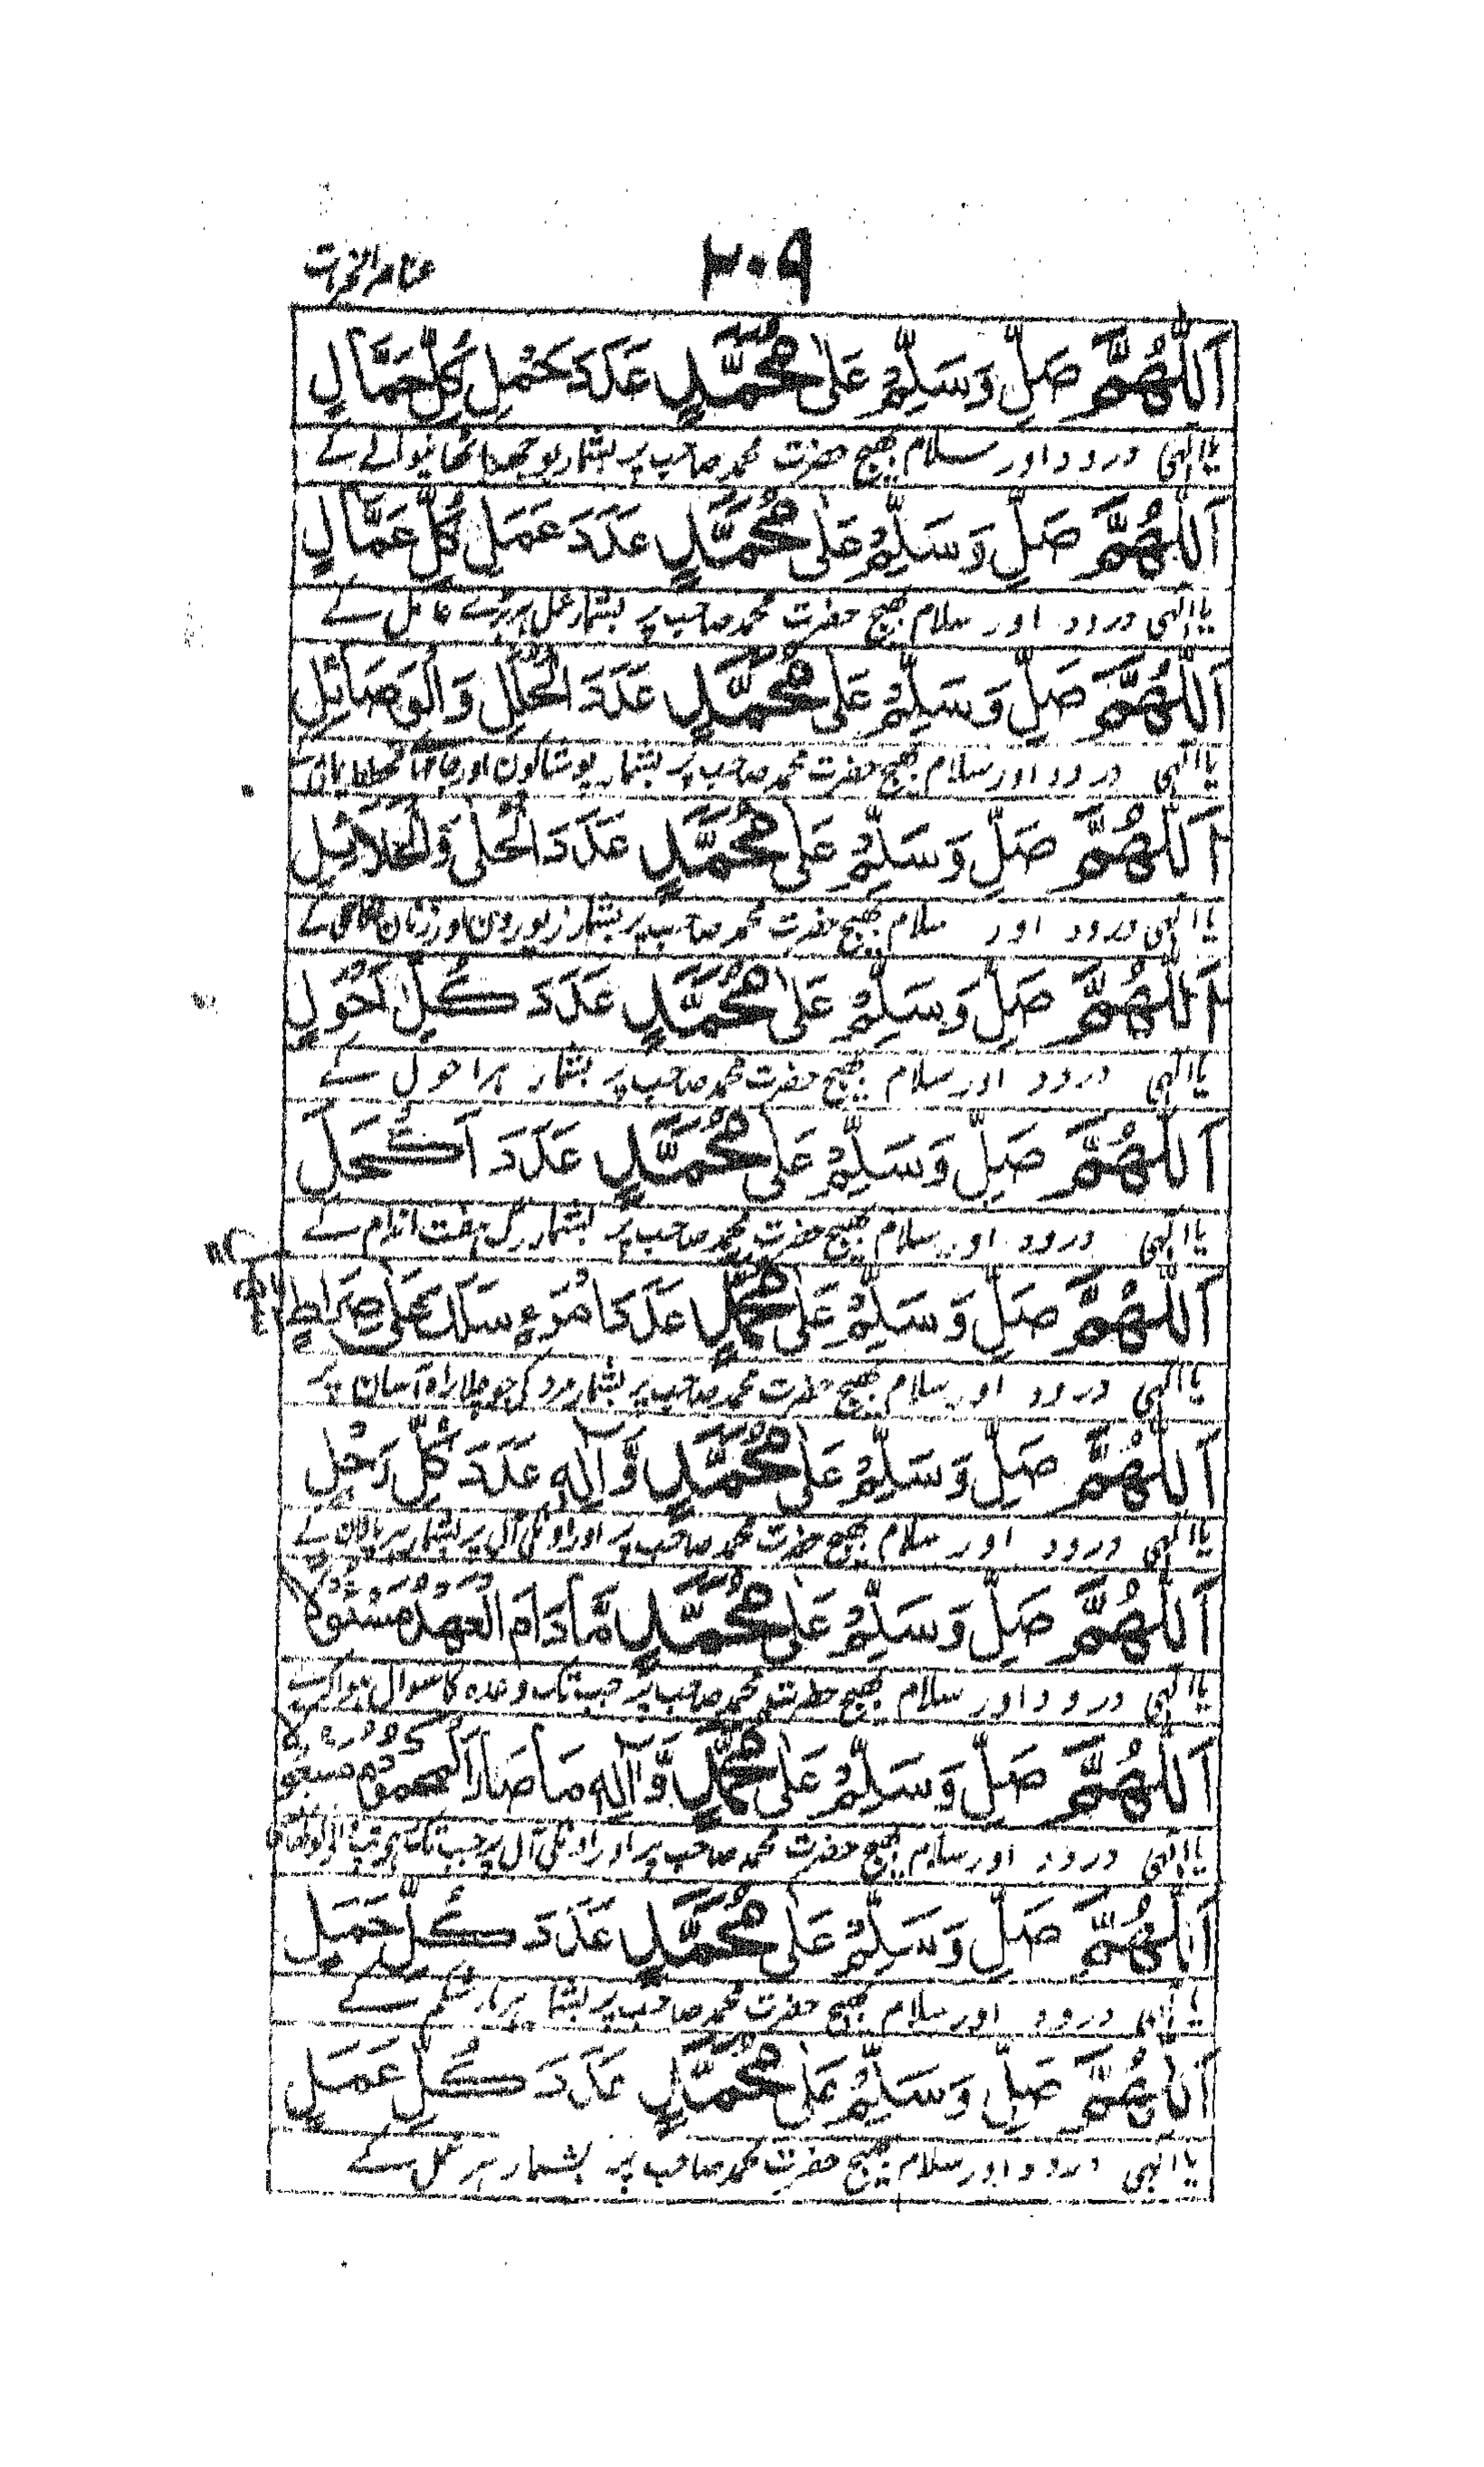 ۲۰۹
اَللّٰهُمَّ صَلِّ وَسَلِّمْ عَلٰی مُحَمَّدٍ عَدَدَ حَمْلِ كُلِّ حَمَّالٍ
یا الٰہی درود اور سلام بھیج حضرت محمد صاحب پر بشمار بوجھ اٹھانیوالے کے
اَللّٰهُمَّ صَلِّ وَسَلِّمْ عَلٰی مُحَمَّدٍ عَدَدَ عَمَلِ كُلِّ عَمَّالٍ
یا الٰہی درود اور سلام بھیج حضرت محمد صاحب پر بشمار عمل ہر بڑے عامل کے
اَللّٰهُمَّ صَلِّ وَسَلِّمْ عَلٰی مُحَمَّدٍ عَدَدَ الْحُلَلِ وَالْوَصَائِلِ
یا الٰہی درود اور سلام بھیج حضرت محمد صاحب پر بشمار پوشاکوں اور
اَللّٰهُمَّ صَلِّ وَسَلِّمْ عَلٰی مُحَمَّدٍ عَدَدَ الْحُلٰی وَالْحَلَائِلِ
یا الٰہی درود اور سلام بھیج حضرت محمد صاحب پر بشمار زیوروں اور زنان کے
اَللّٰهُمَّ صَلِّ وَسَلِّمْ عَلٰی مُحَمَّدٍ عَدَدَ كُلِّ اَحْوَلٍ
یا الٰہی درود اور سلام بھیج حضرت محمد صاحب پر بشمار ہر احول کے
اَللّٰهُمَّ صَلِّ وَسَلِّمْ عَلٰی مُحَمَّدٍ عَدَدَ اَكْحَلَ
یا الٰہی درود اور سلام بھیج حضرت محمد صاحب پر بشمار رگ ہفت اندام کے
اَللّٰهُمَّ صَلِّ وَسَلِّمْ عَلٰی مُحَمَّدٍ عَدَدَ امْرَءٍ سَلَكَ عَلٰی صِرَاطٍ
یا الٰہی درود اور سلام بھیج حضرت محمد صاحب پر بشمار مرد کی جو چلا راہ آسان پر
اَللّٰهُمَّ صَلِّ وَسَلِّمْ عَلٰی مُحَمَّدٍ وَّاٰلِهٖ عَدَدَ كُلِّ رَحْلٍ
یا الٰہی درود اور سلام بھیج حضرت محمد صاحب پر اور اونکی آل پر بشمار ہر پالان کے
اَللّٰهُمَّ صَلِّ وَسَلِّمْ عَلٰی مُحَمَّدٍ مَّادَامَ الْعَهْدُ مَسْئُوْلًا
یا الٰہی درود اور سلام بھیج حضرت محمد صاحب پر جب تک وعدہ کا سوال ہوا کرے
اَللّٰهُمَّ صَلِّ وَسَلِّمْ عَلٰی مُحَمَّدٍ وَّاٰلِهٖ مَاصَارَ
یا الٰہی درود اور سلام بھیج حضرت محمد صاحب پر اور اونکی آل پر جب تک
اَللّٰهُمَّ صَلِّ وَسَلِّمْ عَلٰی مُحَمَّدٍ عَدَدَ كُلِّ حَمَلٍ
یا الٰہی درود اور سلام بھیج حضرت محمد صاحب پر بشمار ہر بار شکم کے
اَللّٰهُمَّ صَلِّ وَسَلِّمْ عَلٰی مُحَمَّدٍ عَدَدَ كُلِّ عَمَلٍ
یا الٰہی درود اور سلام بھیج حضرت محمد صاحب پر بشمار ہر عمل کے